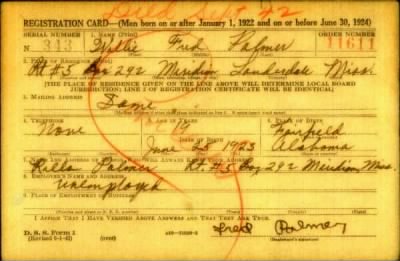 REGISTRATION CARD—(Men born on or after January 1, 1922 and on or before June 30, 1924)
SERIAL NUMBER 1. NAME (Print) ORDER NUMBER
N 343 Willie Fred Palmer 11611
Rt #5 Box 292 Meridian Lauderdale Miss.
(THE PLACE OF RESIDENCE GIVEN ON THE LINE ABOVE WILL DETERMINE LOCAL BOARD
JURISDICTION; LINE 2 OF REGISTRATION CERTIFICATE WILL BE IDENTICAL)
3. MAILING ADDRESS
Same
4. TELEPHONE 5. AGE IN YEARS 6. PLACE OF BIRTH
None 19 Fairfield
DATE OF BIRTH
June 25 1923 Alabama
7. NAME AND ADDRESS OF PERSON WHO WILL ALWAYS KNOW YOUR ADDRESS
Palmer Rt. #5 Box 292 Meridian, Miss.
8. EMPLOYER'S NAME AND ADDRESS
Unemployed
9. PLACE OF EMPLOYMENT OR BUSINESS
I AFFIRM THAT I HAVE VERIFIED ABOVE ANSWERS AND THAT THEY ARE TRUE.
D. S. S. Form 1
(over)
Fred Palmer
(Registrant's signature)